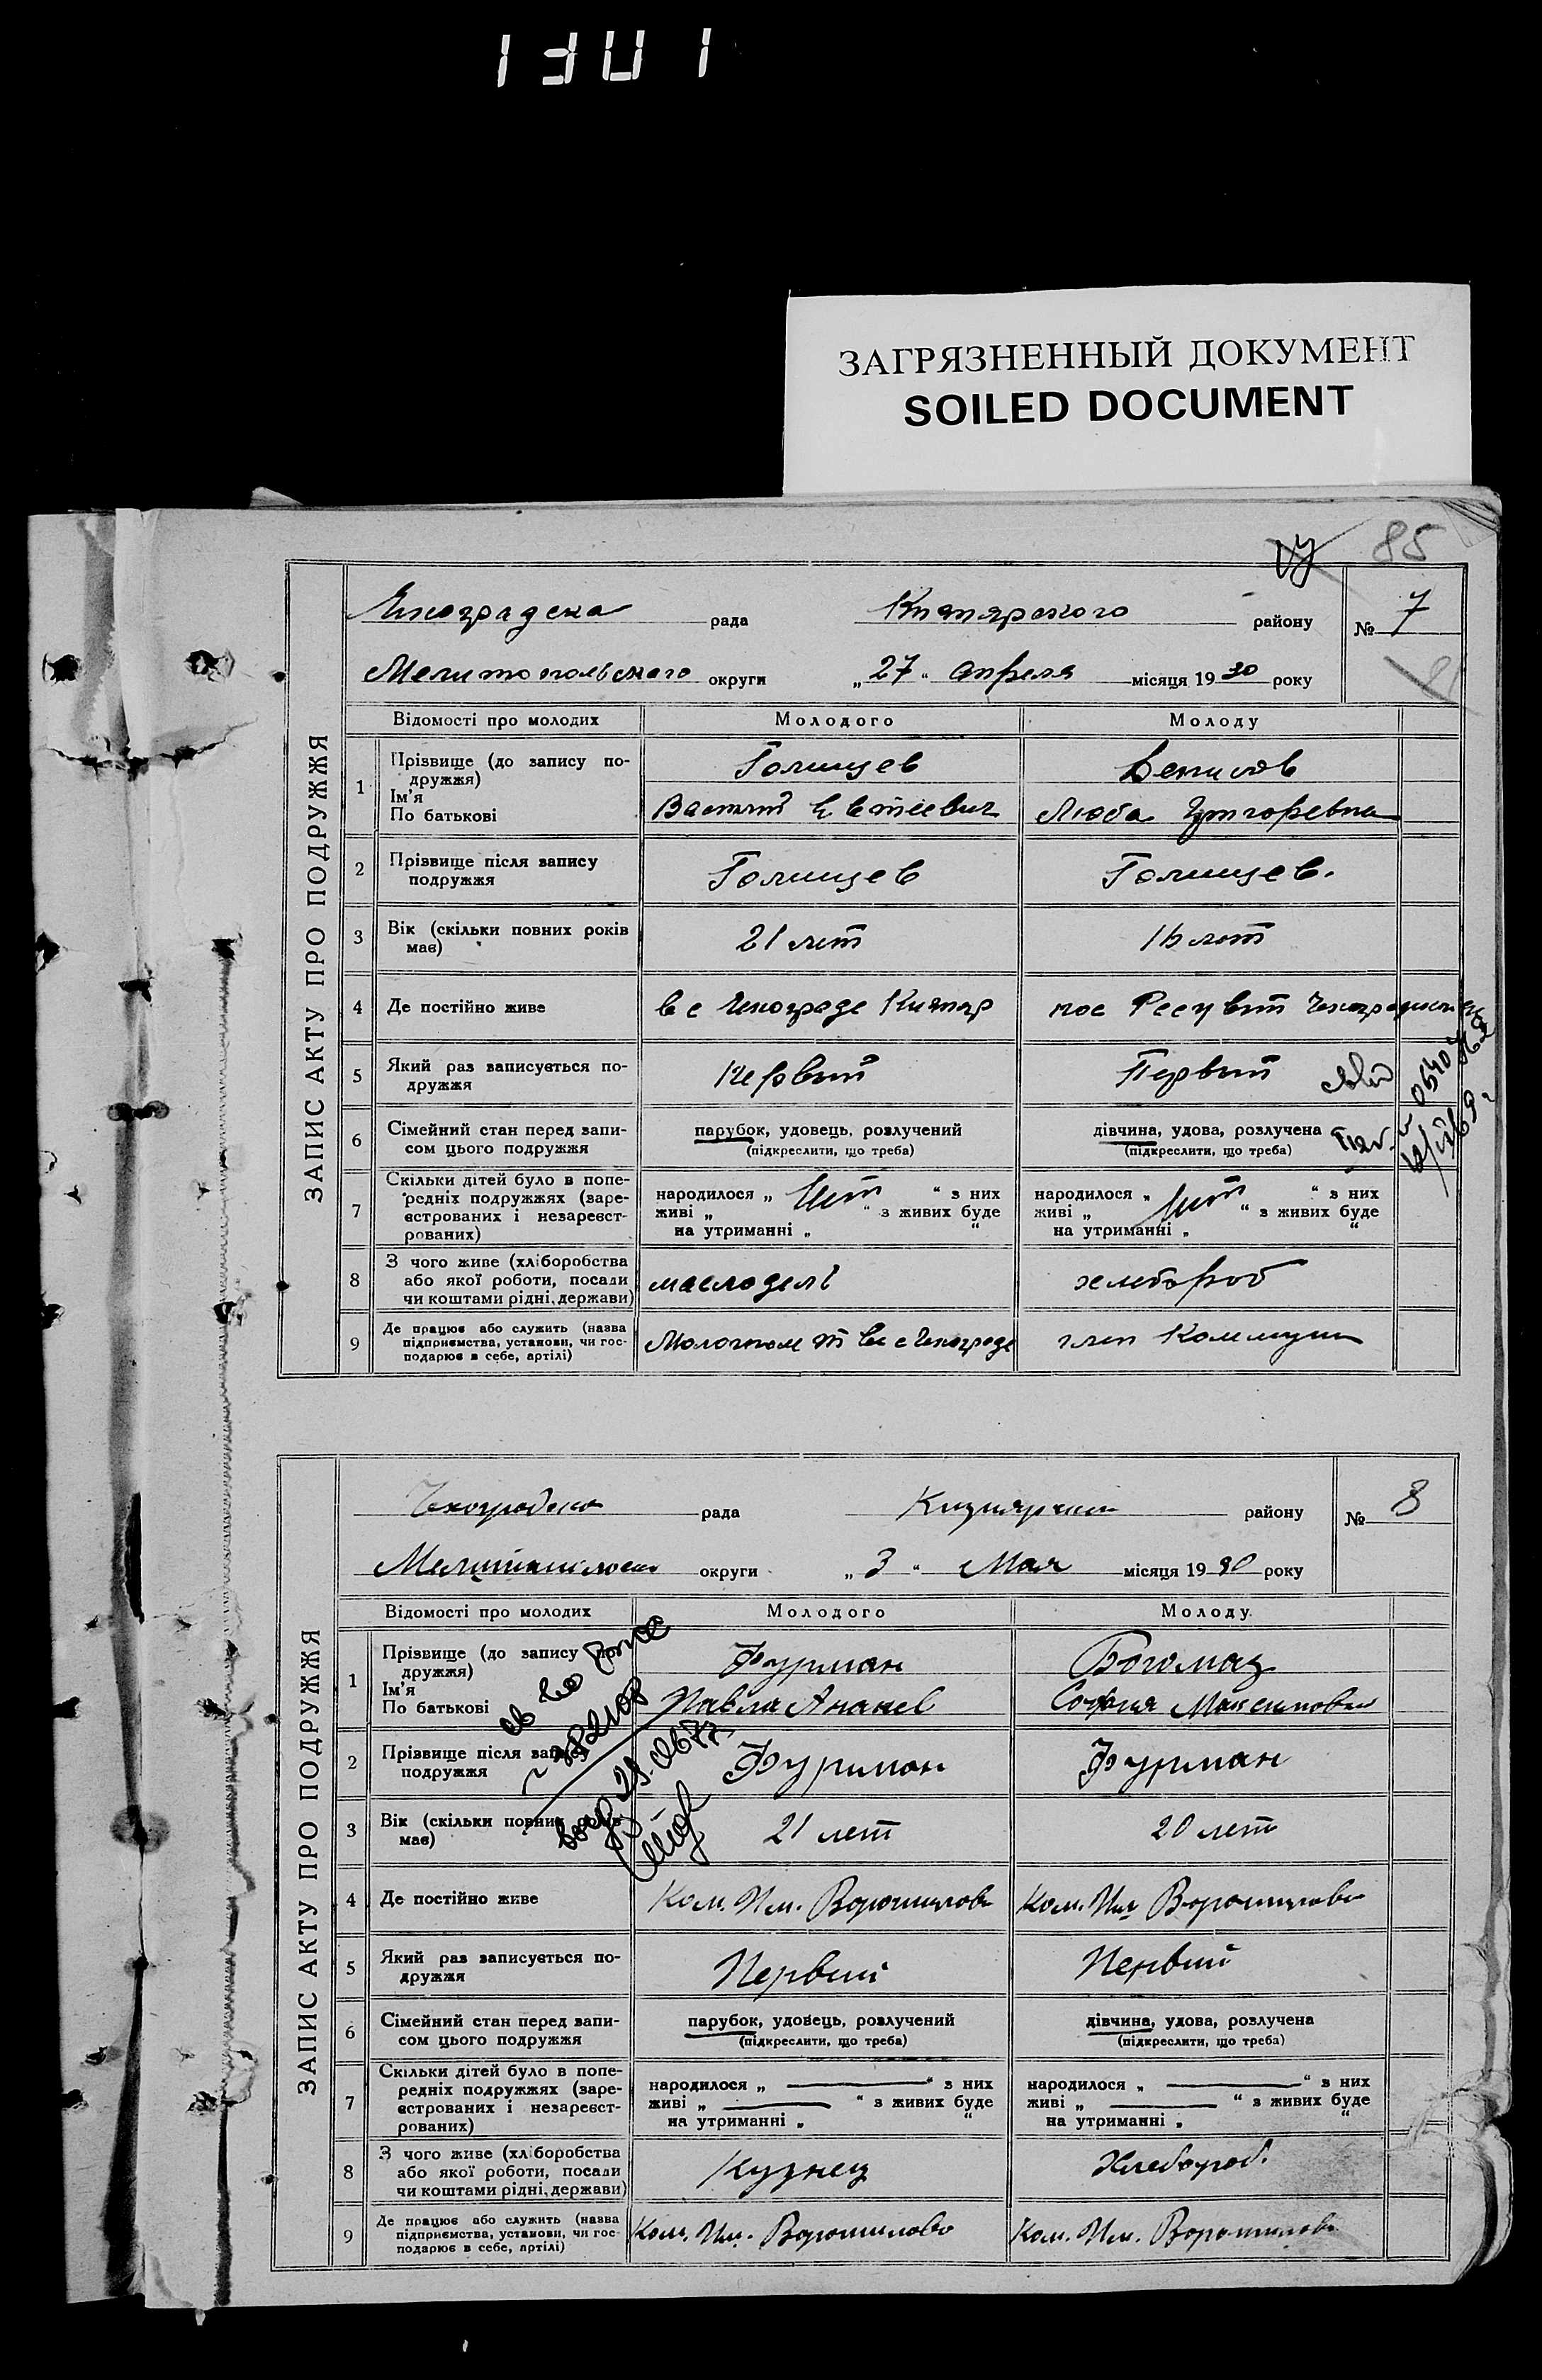 1301
ЗАГРЯЗНЕННЫЙ ДОКУМЕНТ
SOILED DOCUMENT
85
ЗАПИС АКТУ ПРО ПОДРУЖЖЯ
рада району № 7
Мелитопольского округи „27“ апреля місяця 1930 року
Відомості про молодих Молодого Молоду
1 Прізвище (до запису по-
дружжя)
Ім'я
По батькові
Голищев
Люба
2 Прізвище після запису
подружжя
Голищев Голищев.
3 Вік (скільки повних років
має)
21 лет 16 лет
4 Де постійно живе
в с Чехограде
5 Який раз записується по-
дружжя
Первый Первый
6 Сімейний стан перед запи-
сом цього подружжя
парубок, удовець, розлучений
(підкреслити, що треба)
дівчина, удова, розлучена
(підкреслити, що треба)
7 Скільки дітей було в попе-
редніх подружжях (заре-
єстрованих і незареєст-
рованих)
народилося „ Нет “ з них
живі „ “ з живих буде
на утриманні „ “
народилося „ Нет “ з них
живі „ “ з живих буде
на утриманні „ “
8 З чого живе (хліборобства
або якої роботи, посади
чи коштами рідні, держави)
маслодел хлебороб
9 Де працює або служить (назва
підприємства, установи, чи гос-
подарює в себе, артілі)
член Коммуны
ЗАПИС АКТУ ПРО ПОДРУЖЖЯ
рада району № 8
округи „3“ Мая місяця 1930 року
Відомості про молодих Молодого Молоду
1 Прізвище (до запису по-
дружжя)
Ім'я
По батькові
Фурман Богомаз
Павла Ананев София Максимовна
2 Прізвище після запису
подружжя
Фурман Фурман
3 Вік (скільки повних років
має)
21 лет 20 лет
4 Де постійно живе
Ком. Им. Ворошилова Ком. Им. Ворошилова
5 Який раз записується по-
дружжя
Первий Первий
6 Сімейний стан перед запи-
сом цього подружжя
парубок, удовець, розлучений
(підкреслити, що треба)
дівчина, удова, розлучена
(підкреслити, що треба)
7 Скільки дітей було в попе-
редніх подружжях (заре-
єстрованих і незареєст-
рованих)
народилося „ — “ з них
живі „ — “ з живих буде
на утриманні „ “
народилося „ — “ з них
живі „ — “ з живих буде
на утриманні „ “
8 З чого живе (хліборобства
або якої роботи, посади
чи коштами рідні, держави)
Кузнец Хлебороб.
9 Де працює або служить (назва
підприємства, установи, чи гос-
подарює в себе, артілі)
Ком. Им. Ворошилова Ком. Им. Ворошилова